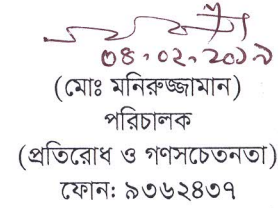 ০৪.০২.২০১৯
(মোঃ মনিরুজ্জামান)
পরিচালক
(প্রতিরোধ ও গণসচেতনতা)
ফোন: ৯৩৬২৪৩৭